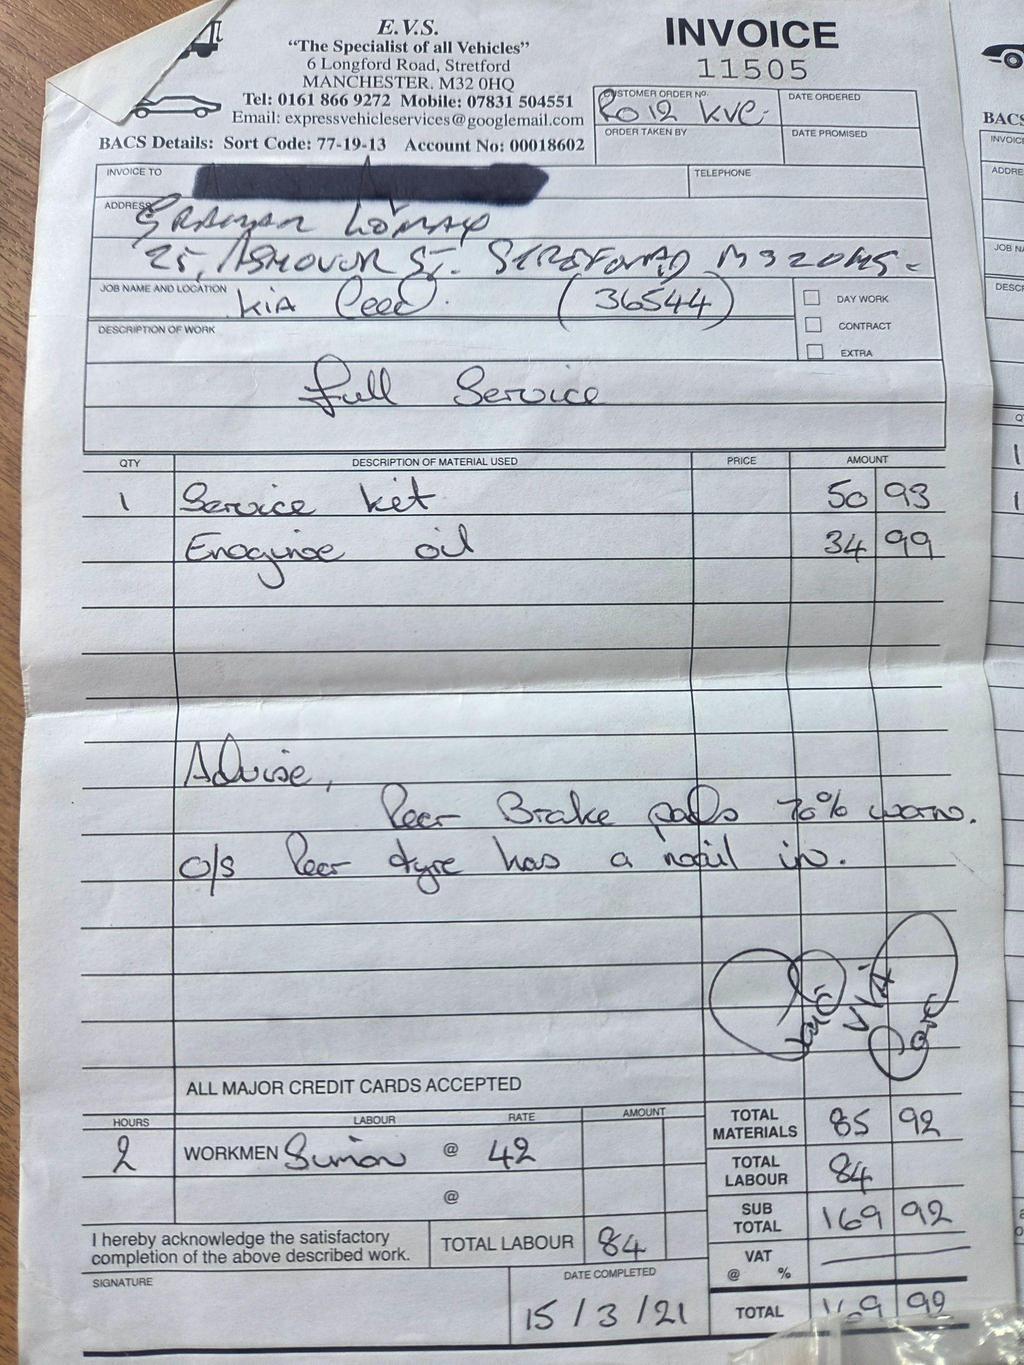 E.V.S.
"The Specialist of all Vehicles"
6 Longford Road, Stretford
MANCHESTER. M32 0HQ
Tel: 0161 866 9272 Mobile: 07831 504551
Email: expressvehicleservices@googlemail.com
BACS Details: Sort Code: 77-19-13 Account No: 00018602
INVOICE
11505
CUSTOMER ORDER NO. RO12 KVC.
DATE ORDERED
ORDER TAKEN BY
DATE PROMISED
INVOICE TO
TELEPHONE
ADDRESS GRAHAM LOMAX
25, ASHOVER ST. STRETFORD M32
JOB NAME AND LOCATION KIA Ceed. (36544)
DAY WORK
CONTRACT
EXTRA
DESCRIPTION OF WORK
full Service
QTY DESCRIPTION OF MATERIAL USED PRICE AMOUNT
1 Service kit 50 93
Enogine oil 34 99
Advise,
Rear Brake pads 70% worn.
O/S Rear tyre has a nail in.
Paid
VIA
Card
ALL MAJOR CREDIT CARDS ACCEPTED
HOURS LABOUR RATE AMOUNT
2 WORKMEN Simon @ 42
@
I hereby acknowledge the satisfactory
completion of the above described work.
TOTAL LABOUR 84
SIGNATURE
DATE COMPLETED
15/3/21
TOTAL MATERIALS 85 92
TOTAL LABOUR 84
SUB TOTAL 169 92
VAT @ %
TOTAL 169 92
BACS
INVOICE
ADDRE
JOB N
DESC
1
1